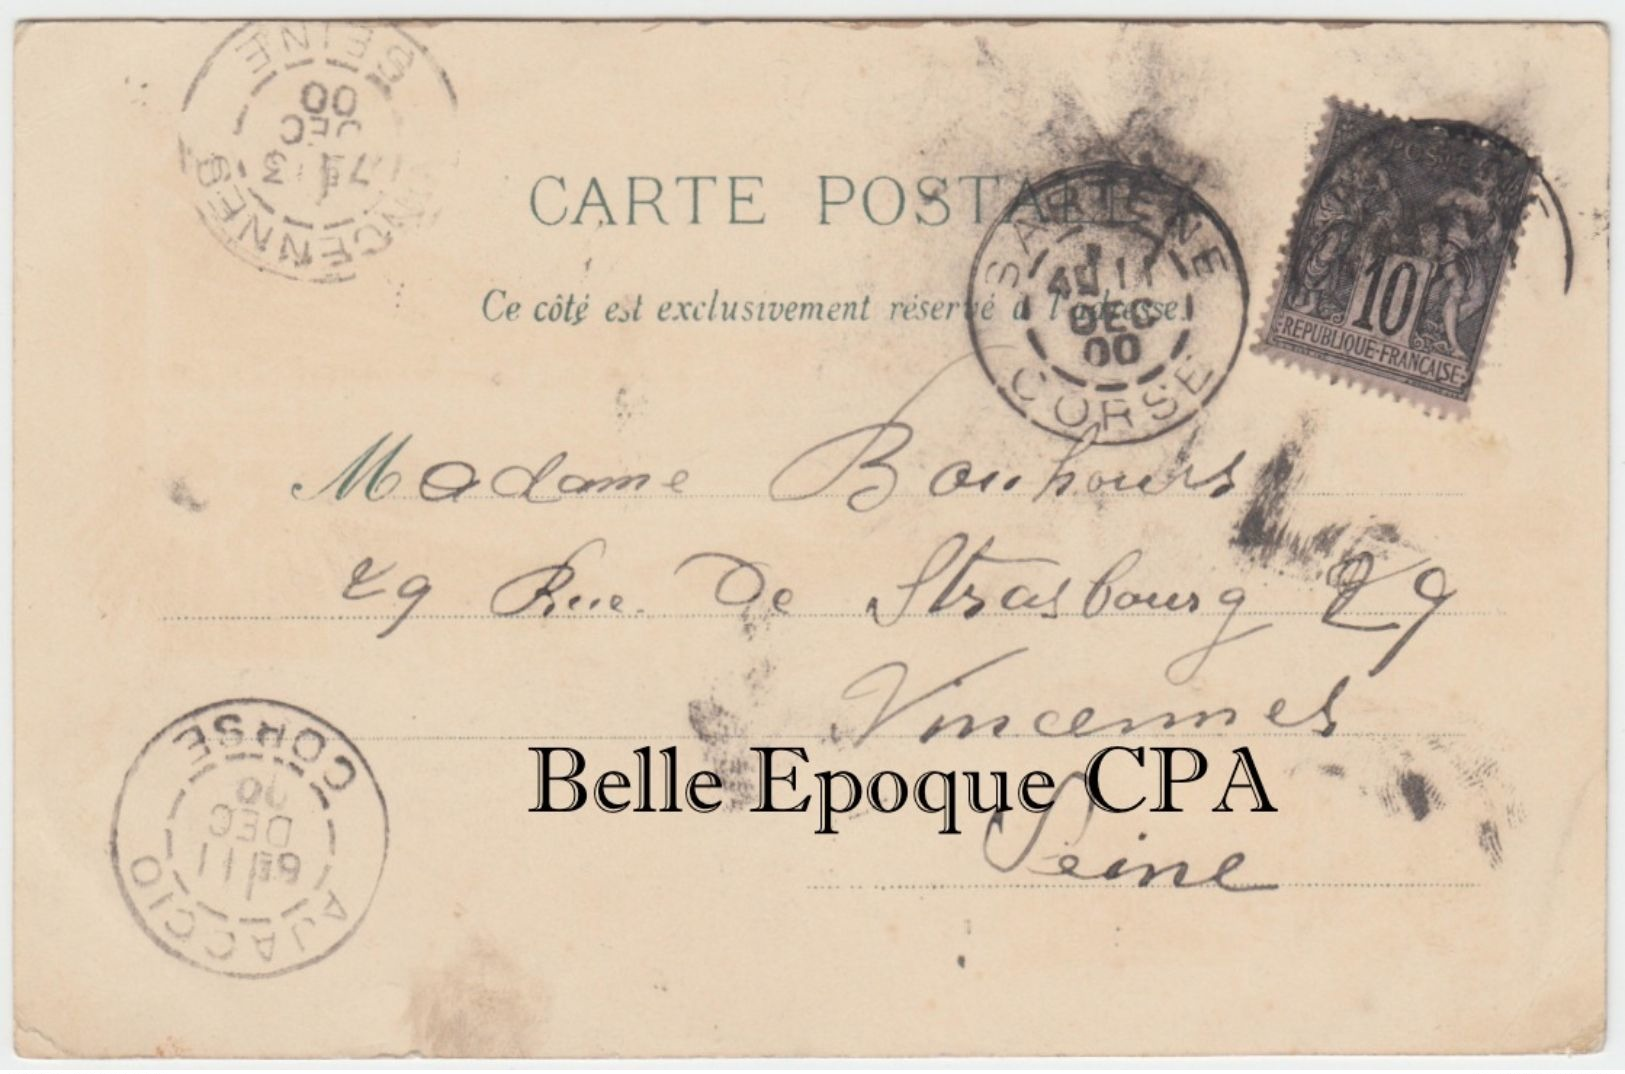 SEINE
00
DEC
7 13
VINCENNES
CARTE POSTALE
Ce côté est exclusivement réservé à l'adresse.
SARTENE
4E 11
DEC
00
CORSE
POSTE
10
REPUBLIQUE-FRANCAISE
Madame Bonhours
29 Rue De Strasbourg 29
Vincennes
Belle Epoque CPA
Seine
CORSE
00
DEC
6E 11
AJACCIO